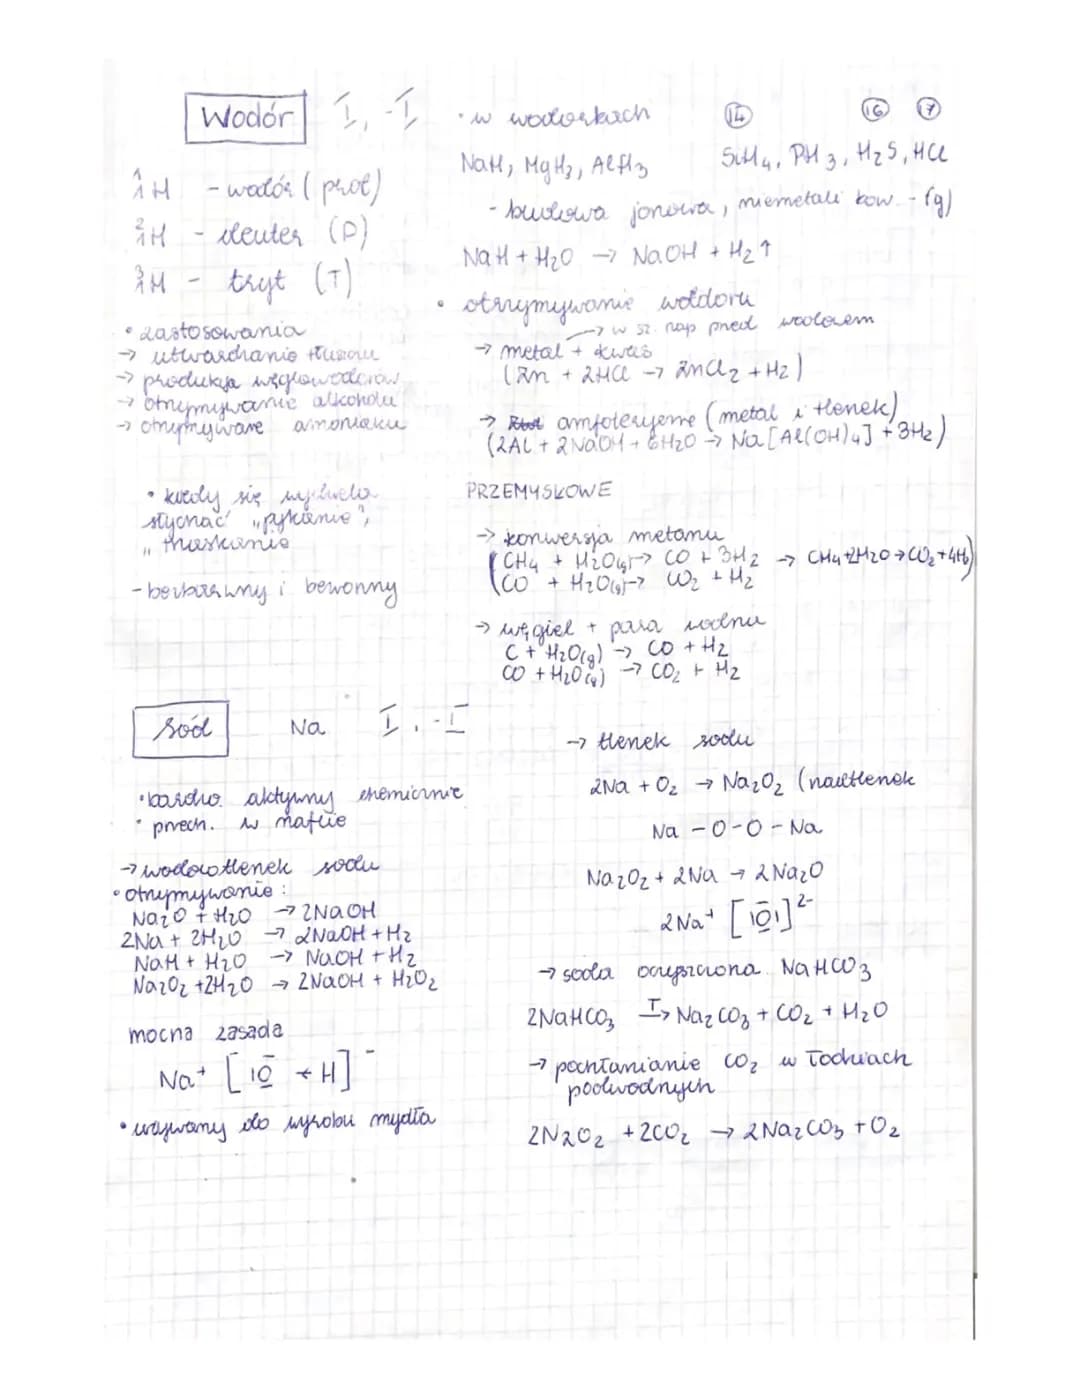 Wodór I, -I
¹₁H - wodór (prot)
²₁H - deuter (D)
³₁H - tryt (T)
• zastosowania
→ utwardzanie tłuszczu
→ produkcja węglowodorów
→ otrzymywanie alkoholu
→ otrzymywanie amoniaku
• kiedy się wybucha
słychać "pykanie",
"trzaskanie
- bezbarwny i bezwonny
• w wodorkach
NaH, MgH₂, AlH₃
14 16 17
SiH₄, PH₃, H₂S, HCl
- budowa jonowa, niemetali kow. - (g)
NaH + H₂O → NaOH + H₂↑
• otrzymywanie wodoru
→ w sz. nap przed wodorem
→ metal + kwas
(Zn + 2HCl → ZnCl₂ + H₂)
→ amfoteryczne (metal i tlenek)
(2Al + 2NaOH + 6H₂O → Na[Al(OH)₄] + 3H₂)
PRZEMYSŁOWE
→ konwersja metanu
CH₄ + H₂O(g) → CO + 3H₂ → CH₄+2H₂O→CO₂+4H₂
CO + H₂O(g) → CO₂ + H₂
→ węgiel + para wodna
C + H₂O(g) → CO + H₂
CO + H₂O(g) → CO₂ + H₂
Sód Na I, -I
• bardzo aktywny chemicznie
• przech. w nafcie
→ wodorotlenek sodu
• otrzymywanie:
Na₂O + H₂O → 2NaOH
2Na + 2H₂O → 2NaOH + H₂
NaH + H₂O → NaOH + H₂
Na₂O₂ + 2H₂O → 2NaOH + H₂O₂
mocna zasada
Na⁺ [|O̅ ← H]⁻
• używany do wyrobu mydła
→ tlenek sodu
2Na + O₂ → Na₂O₂ (nadtlenek
Na - O - O - Na
Na₂O₂ + 2Na → 2Na₂O
2Na⁺ [|O̅|]²⁻
→ soda oczyszczona NaHCO₃
2NaHCO₃ T→ Na₂CO₃ + CO₂ + H₂O
→ pochłanianie CO₂ w łodziach
podwodnych
2N2O₂ + 2CO₂ → 2Na₂CO₃ + O₂